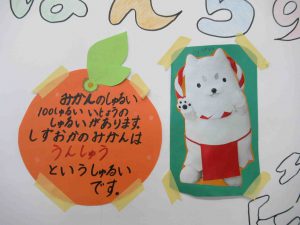 みかんのしゅるい
100しゅるい いじょうの
しゅるいがあります。
しずおかのみかんは
うんしゅう
というしゅるい
です。